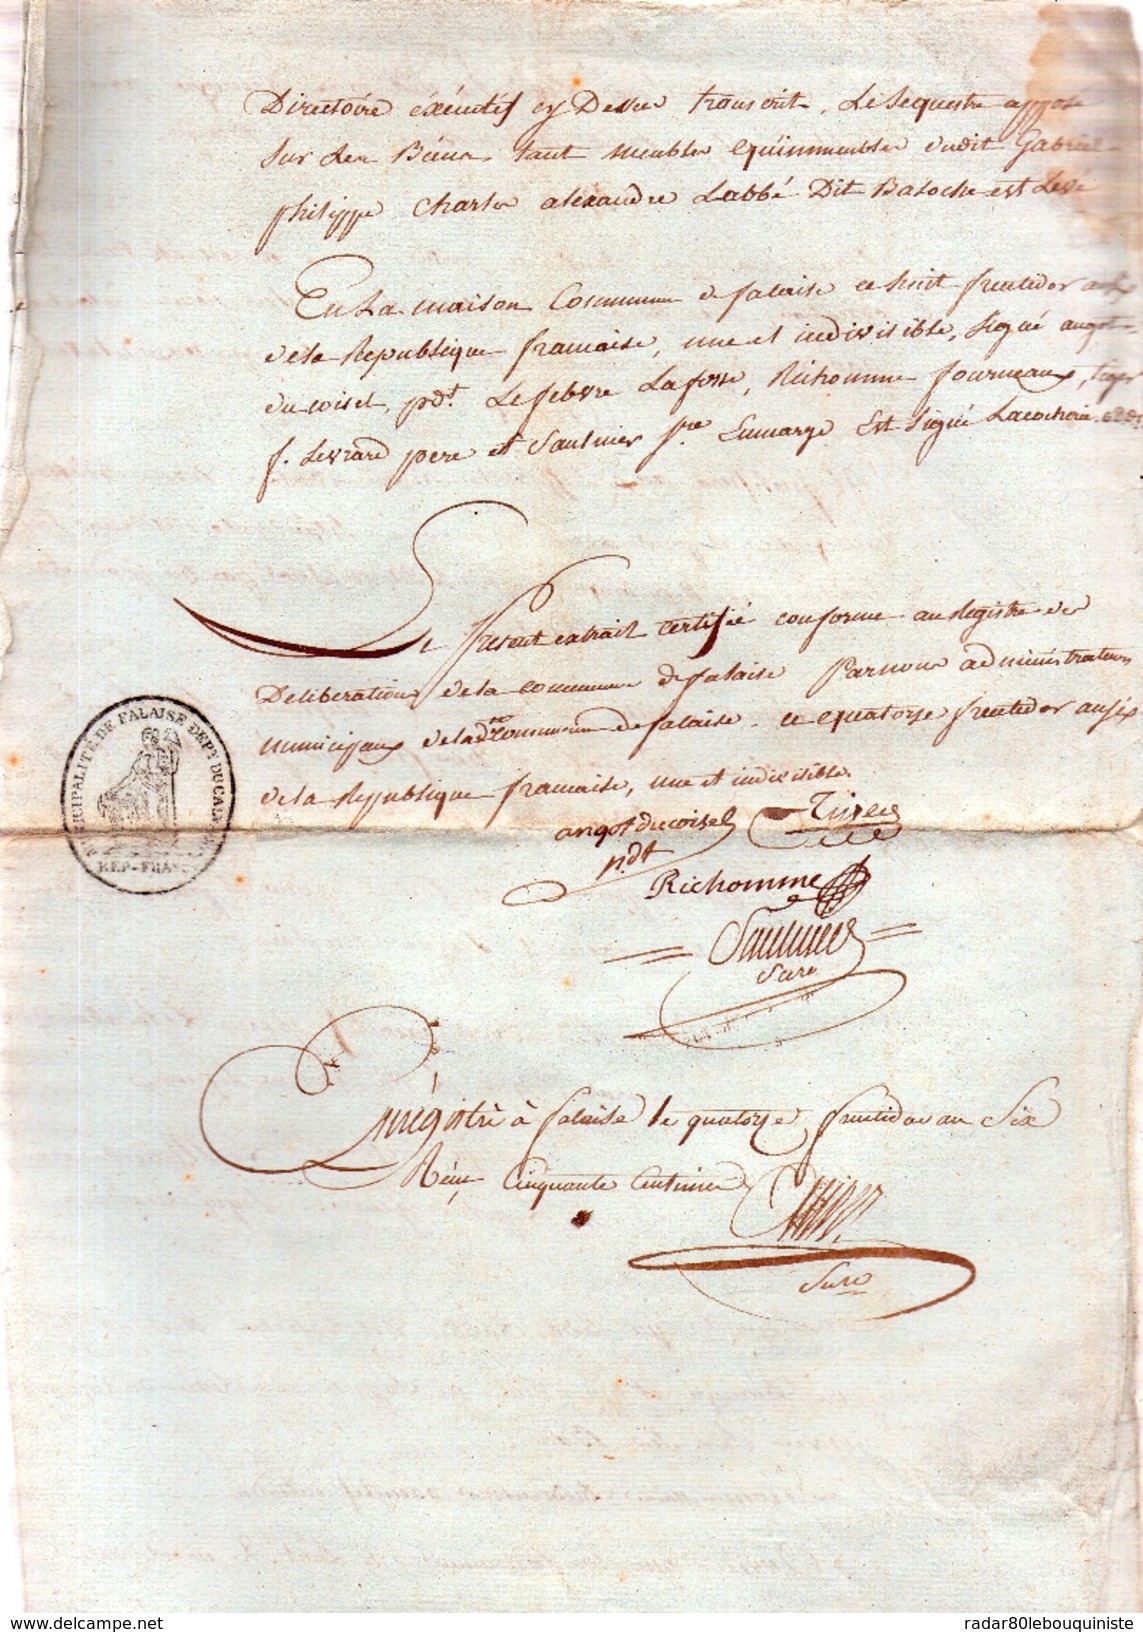 Directoire éxécutif cy Dessus transcrit, Le Sequestre apposé
Sur Les Biens, tant meubles equimmeubles dudit Gabriel
philippe Charles alexandre Labbé Dit Baloche est Levé
En La maison Commune de falaise ce huit fructidor an six
dela Republique francaise, une et indivisible, Signé angot
ducoisel, pdt. Lefebvre Lafosse, Richomme fourneaux,
f. Levrard pere et Saulnier Sre Enmarge Est Signé
Le present extrait certifié conforme au Registre des
Deliberations dela commune de falaise Par nous administrateurs
municipaux deladte commune de falaise ce quatorze fructidor an six
dela Republique francaise, une et indivisible.
angot ducoisel
pdt
Richomme
Saulnier
Sere
MUNICIPALITÉ DE FALAISE DEPT DU CALVADOS
REP-FRANC
Enrégistré à falaise le quatorze fructidor an Six
Réçu Cinquante Centimes
© delcampe.net
radar80lebouquiniste